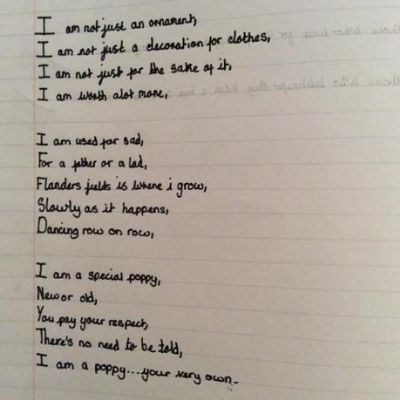 I am not just an ornament,
I am not just a decoration for clothes,
I am not just for the sake of it,
I am worth alot more,
I am used for sad,
For a father or a lad,
Flanders fields is where i grow,
Slowly as it happens,
Dancing row on row,
I am a special poppy,
New or old,
You pay your respect,
There's no need to be told,
I am a poppy...your very own.